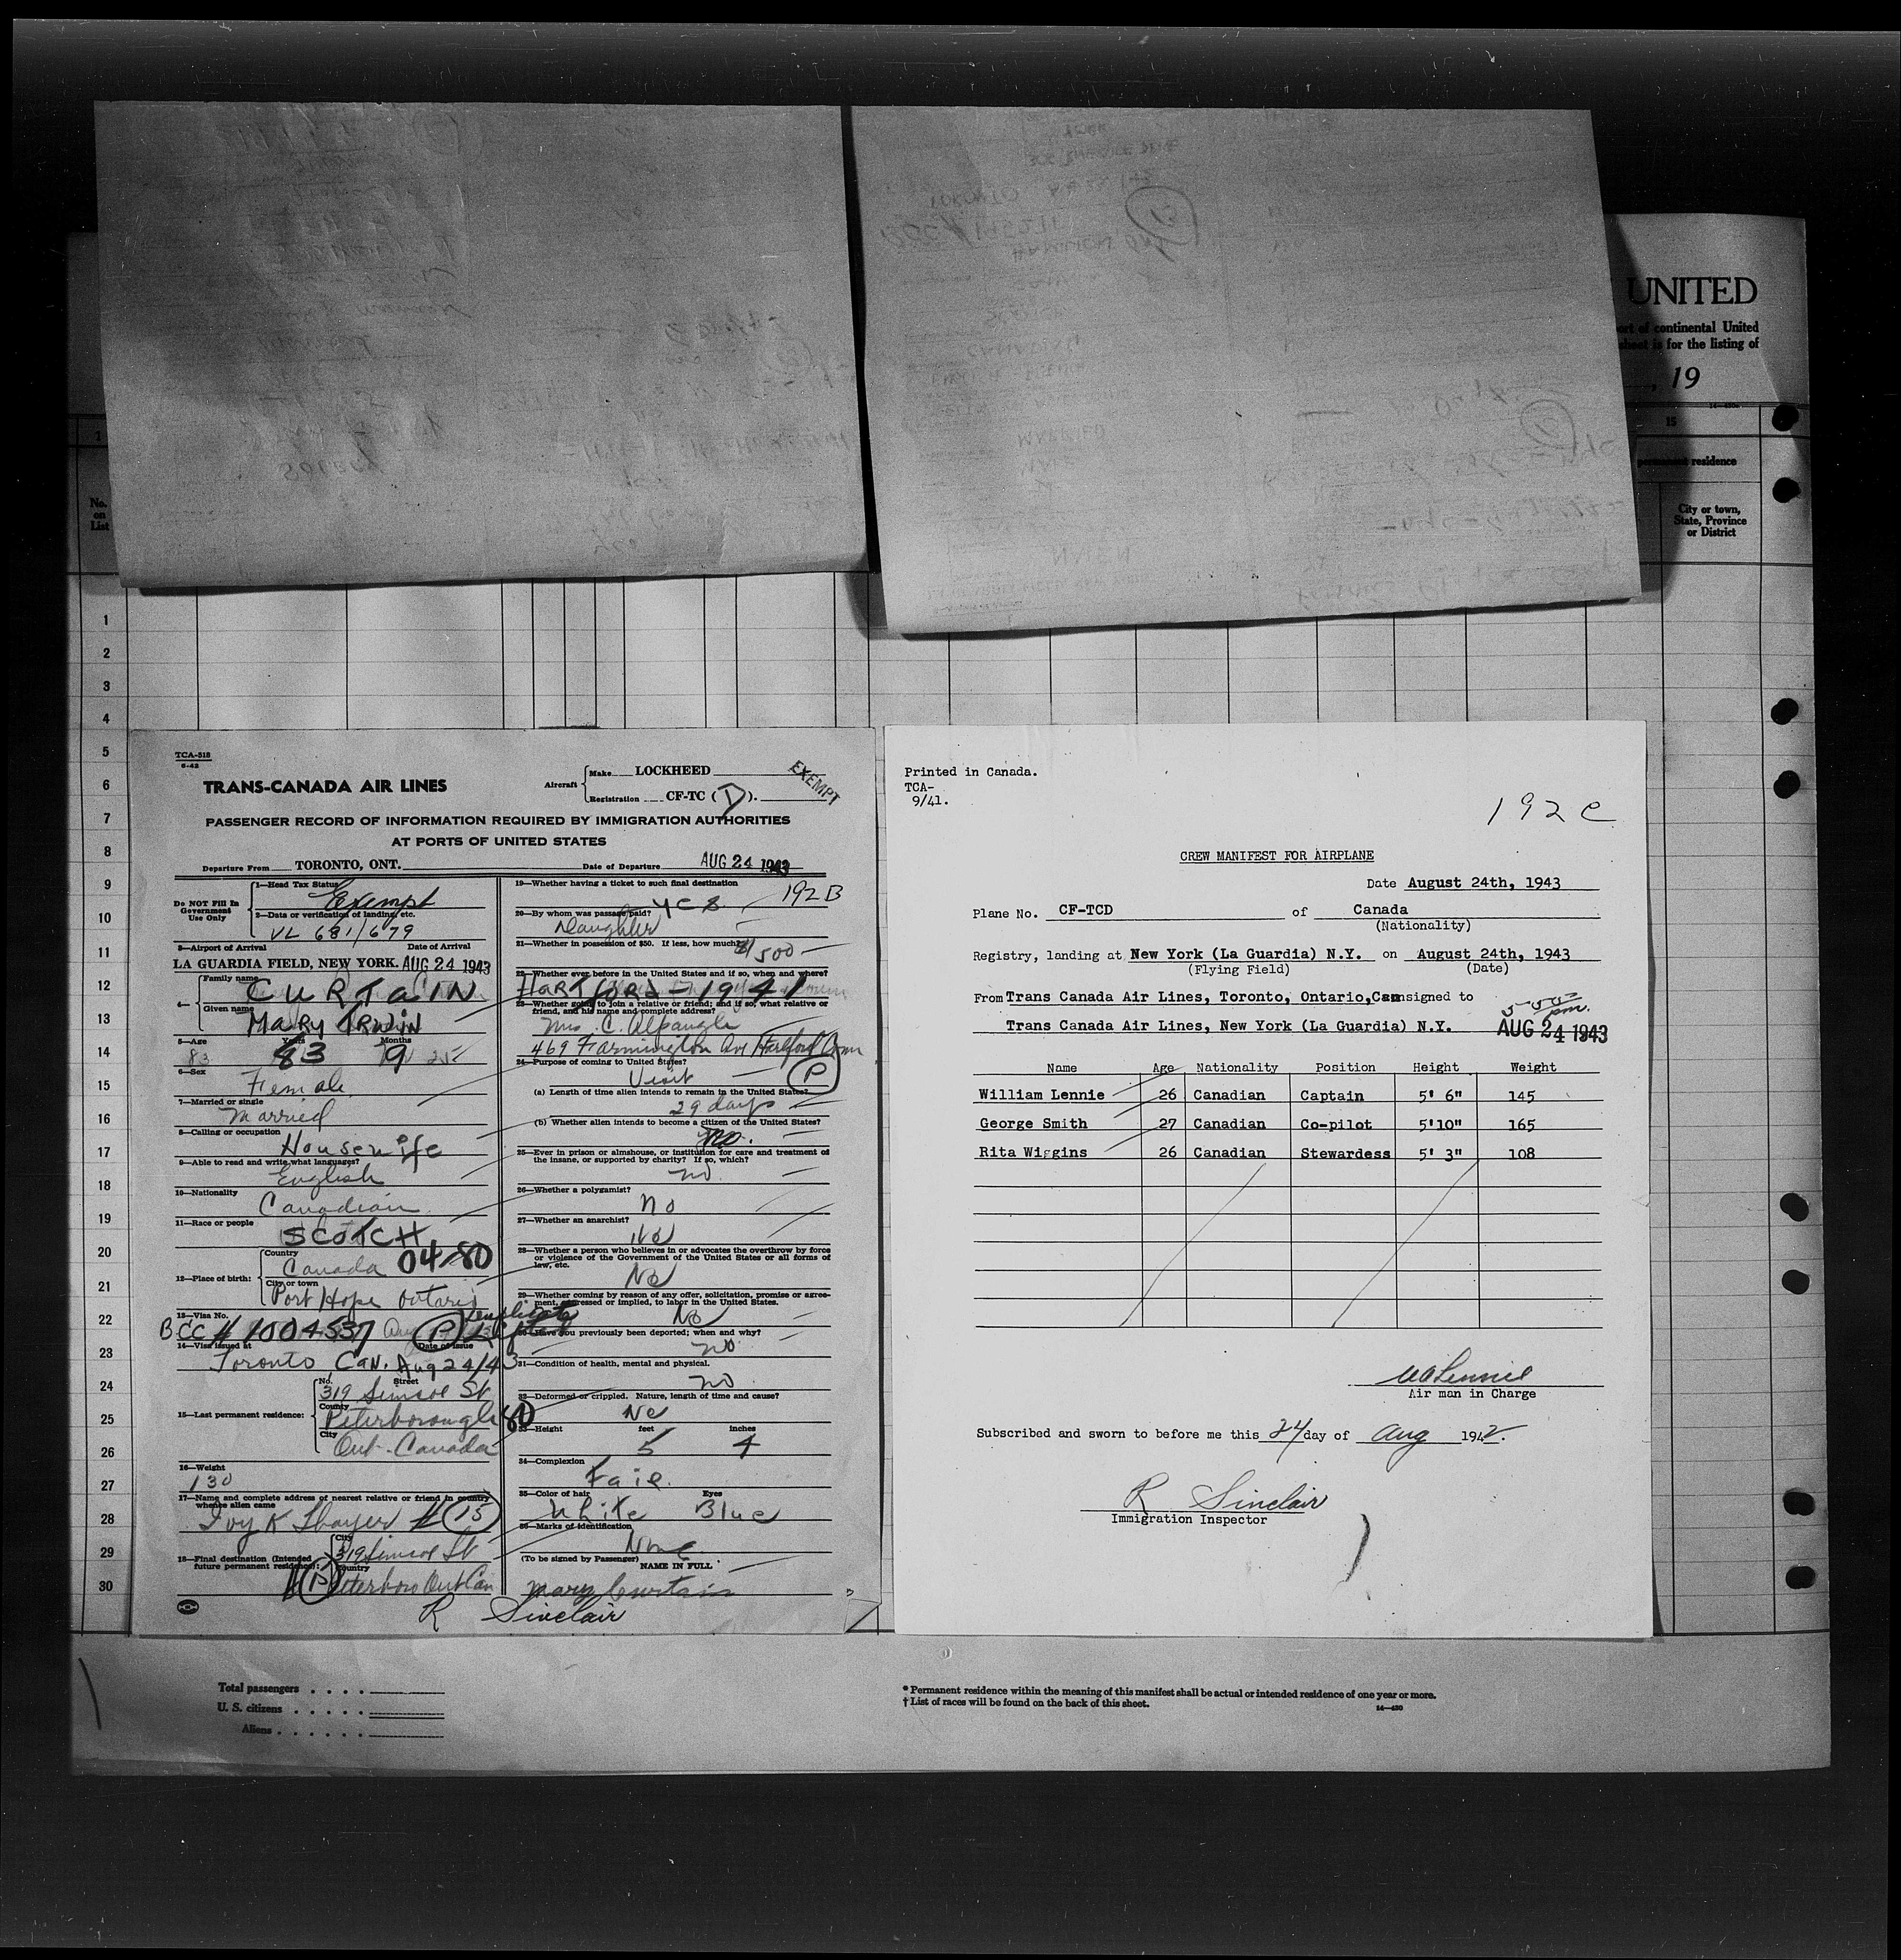 UNITED
ort of continental United
sheet is for the listing of
, 19
15
permanent residence
No.
on
List
City or town,
State, Province
or District
1
2
3
4
5
6
7
8
9
10
11
12
13
14
15
16
17
18
19
20
21
22
23
24
25
26
27
28
29
30
TCA-518
6-42
TRANS-CANADA AIR LINES
Aircraft
Make LOCKHEED
Registration CF-TC (D).
EXEMPT
PASSENGER RECORD OF INFORMATION REQUIRED BY IMMIGRATION AUTHORITIES
AT PORTS OF UNITED STATES
Departure From TORONTO, ONT. Date of Departure AUG 24 1943
Do NOT Fill In
Government
Use Only
1—Head Tax Status
Exempt
2—Data or verification of landing, etc.
VL 681/679
3—Airport of Arrival Date of Arrival
LA GUARDIA FIELD, NEW YORK. AUG 24 1943
4—
Family name
CURTAIN
Given name
MARY IRWIN
5—Age Years Months
83 83 9
6—Sex
Female
7—Married or single
Married
8—Calling or occupation
Housewife
9—Able to read and write, what languages?
English
10—Nationality
Canadian
11—Race or people
SCOTCH
12—Place of birth:
Country
Canada 04-80
City or town
Port Hope Ontario
13—Visa No.
BCC # 1004537 (P)
14—Visa issued at Date of issue
Toronto Can. Aug 24/43
15—Last permanent residence:
No. Street
319 Simcoe St
County
Peterborough
City
Ont - Canada
16—Weight
130
17—Name and complete address of nearest relative or friend in country
whence alien came
Ivy K Thayer # (15)
18—Final destination (Intended
future permanent residence):
City
319 Simcoe St
Country
Peterboro Ont Can
19—Whether having a ticket to such final destination
Yes. 192 B
20—By whom was passage paid?
Daughter
21—Whether in possession of $50. If less, how much?
$500 —
22—Whether ever before in the United States and if so, when and where?
HARTFORD - 1941
23—Whether going to join a relative or friend; and if so, what relative or
friend, and his name and complete address?
Mrs. C. Alpaugh
469 Farmington Av Hartford Conn
24—Purpose of coming to United States?
Visit (P)
(a) Length of time alien intends to remain in the United States?
29 days
(b) Whether alien intends to become a citizen of the United States?
No.
25—Ever in prison or almshouse, or institution for care and treatment of
the insane, or supported by charity? If so, which?
no
26—Whether a polygamist?
no
27—Whether an anarchist?
No
28—Whether a person who believes in or advocates the overthrow by force
or violence of the Government of the United States or all forms of
law, etc.
No
29—Whether coming by reason of any offer, solicitation, promise or agree-
ment, expressed or implied, to labor in the United States.
No
30—Have you previously been deported; when and why?
no
31—Condition of health, mental and physical.
no
32—Deformed or crippled. Nature, length of time and cause?
No
33—Height feet inches
5 4
34—Complexion
Fair.
35—Color of hair Eyes
White Blue
36—Marks of identification
None
(To be signed by Passenger) NAME IN FULL
Mary Curtain
R Sinclair
Printed in Canada.
TCA-
9/41.
192 C
CREW MANIFEST FOR AIRPLANE
Date August 24th, 1943
Plane No. CF-TCD of Canada
(Nationality)
Registry, landing at New York (La Guardia) N.Y. on August 24th, 1943
(Flying Field) (Date)
From Trans Canada Air Lines, Toronto, Ontario, Consigned to
Trans Canada Air Lines, New York (La Guardia) N.Y.
pm.
AUG 24 1943
Name Age Nationality Position Height Weight
William Lennie 26 Canadian Captain 5' 6" 145
George Smith 27 Canadian Co-pilot 5'10" 165
Rita Wiggins 26 Canadian Stewardess 5' 3" 108
Air man in Charge
Subscribed and sworn to before me this 24 day of Aug 1942.
R Sinclair
Immigration Inspector
Total passengers
U. S. citizens
Aliens
* Permanent residence within the meaning of this manifest shall be actual or intended residence of one year or more.
† List of races will be found on the back of this sheet.
14—430